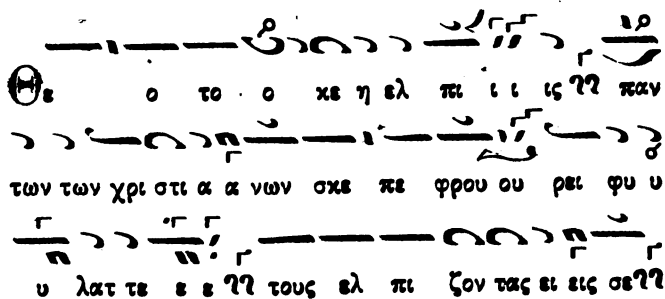 Θε ο το ο κε η ελ πι ι ι ις παν
των των χρι στι α α νων σκε πε φρου ου ρει φυ υ
υ λατ τε ε ε τους ελ πι ζον τας ει εις σε